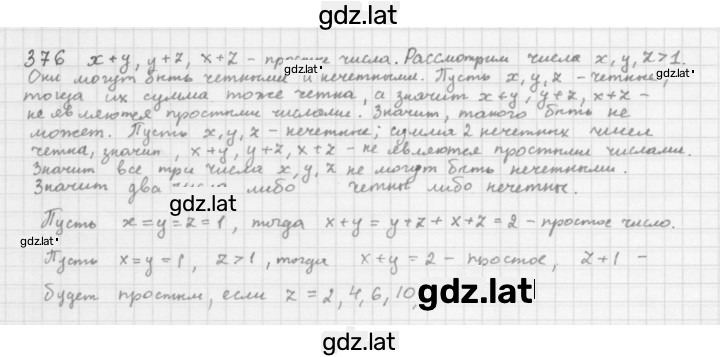 gdz.lat
376 x+y, y+z, x+z – простые числа. Рассмотрим числа x, y, z>1.
gdz.lat
Они могут быть четными и нечетными. Пусть x, y, z – четные,
тогда их сумма тоже четна, а значит x+y, y+z, x+z –
не являются простыми числами. Значит, такого быть не
может. Пусть x, y, z – нечетные; сумма 2 нечетных чисел
четна, значит, x+y, y+z, x+z – не являются простыми числами.
Значит все три числа x, y, z не могут быть нечетными.
Значит два числа либо четны либо нечетны.
gdz.lat
Пусть x=y=z=1, тогда x+y=y+z+x+z=2 – простое число.
gdz.lat
Пусть x=y=1, z>1, тогда x+y=2 – простое, z+1 –
будет простым, если z=2,4,6,10,
gdz.lat
gdz.lat